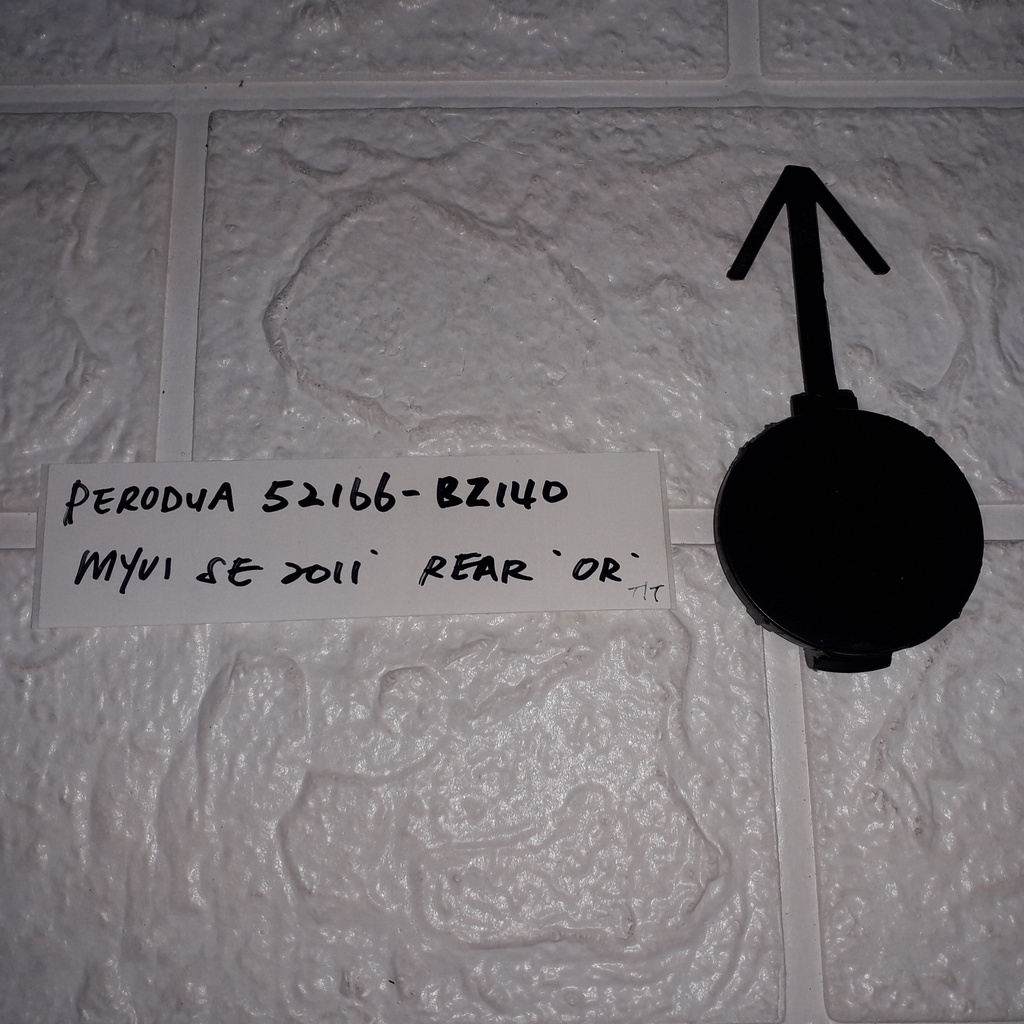 PERODUA 52166-BZ140
MYVI SE 2011' REAR 'OR'
T/T